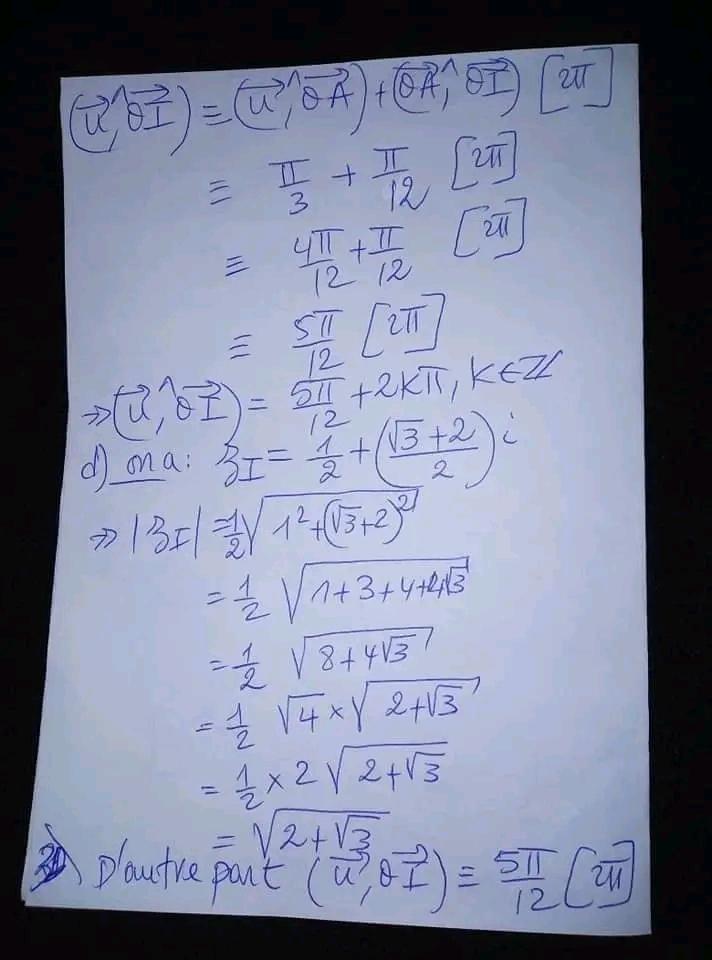 (u⃗^,OI⃗) ≡ (u⃗^,OA⃗) + (OA⃗^,OI⃗) [2π]
≡ π/3 + π/12 [2π]
≡ 4π/12 + π/12 [2π]
≡ 5π/12 [2π]
⇒ (u⃗^,OI⃗) = 5π/12 + 2kπ, k∈ℤ
d) on a: z_I = 1/2 + ((√3+2)/2) i
⇒ |z_I| = 1/2 √(1²+(√3+2)²)
= 1/2 √(1+3+4+4√3)
= 1/2 √(8+4√3)
= 1/2 √4 × √(2+√3)
= 1/2 × 2 √(2+√3)
= √(2+√3)
D'autre part (u⃗,OI⃗) ≡ 5π/12 [2π]